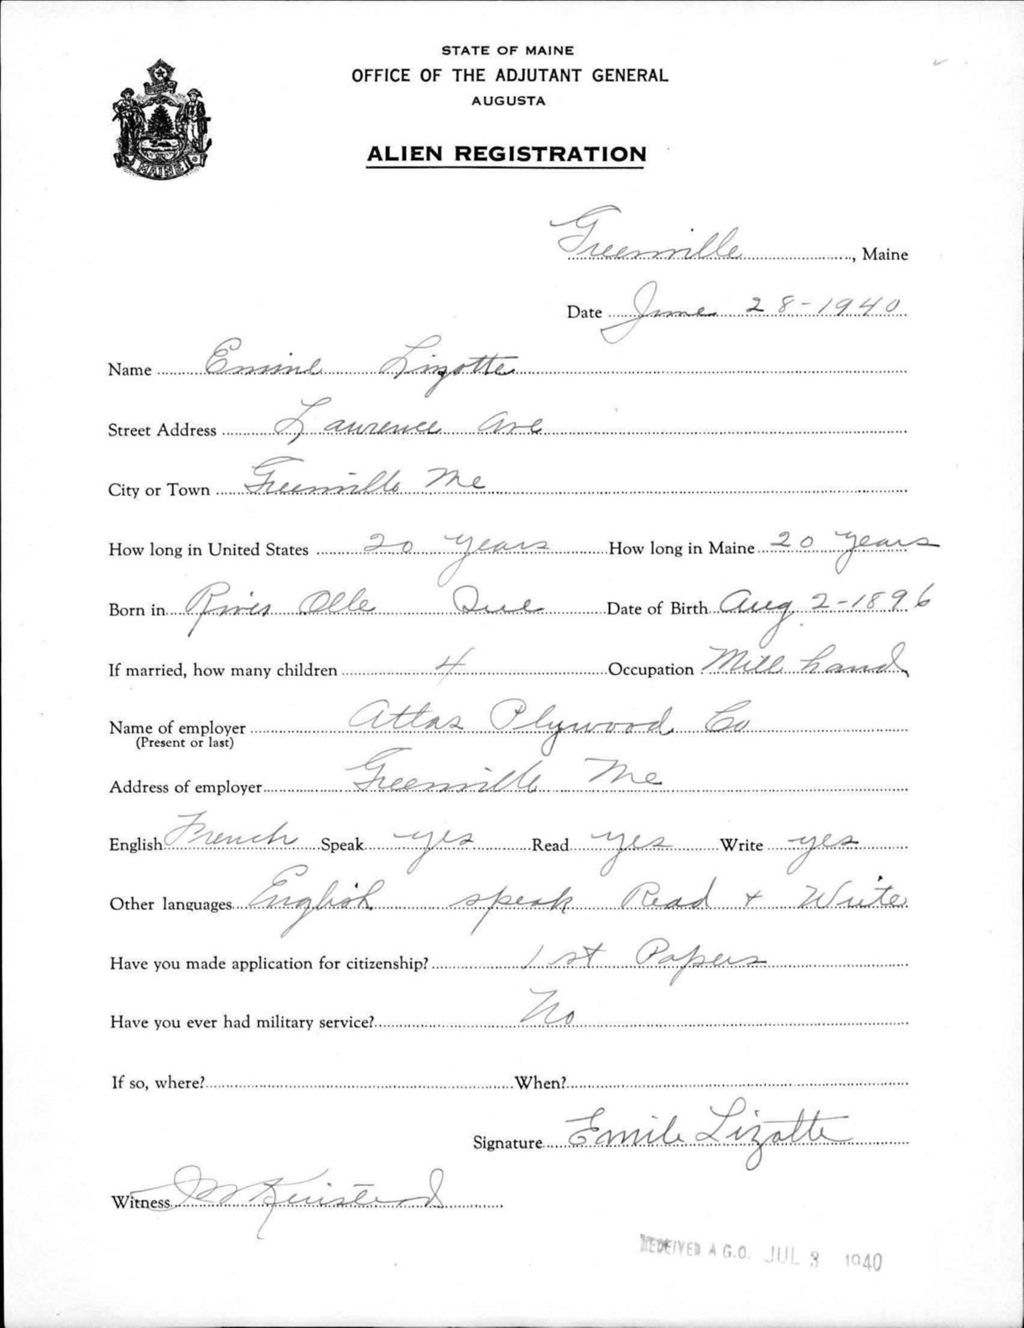 STATE OF MAINE
OFFICE OF THE ADJUTANT GENERAL
AUGUSTA
ALIEN REGISTRATION
MAINE
Greenville, Maine
Date June 28-1940
Name Lizotte
Street Address Lawrence Ave
City or Town Greenville Me
How long in United States 20 years How long in Maine 20 years
Born in Que Date of Birth Aug 2-1896
If married, how many children 4 Occupation Mill hand
Name of employer Atlas Plywood Co
(Present or last)
Address of employer Greenville Me
English French Speak yes Read yes Write yes
Other languages English speak Read + Write
Have you made application for citizenship? 1st Papers
Have you ever had military service? No
If so, where? When?
Signature Emile Lizotte
Witness
RECEIVED A.G.O. JUL 3 1940